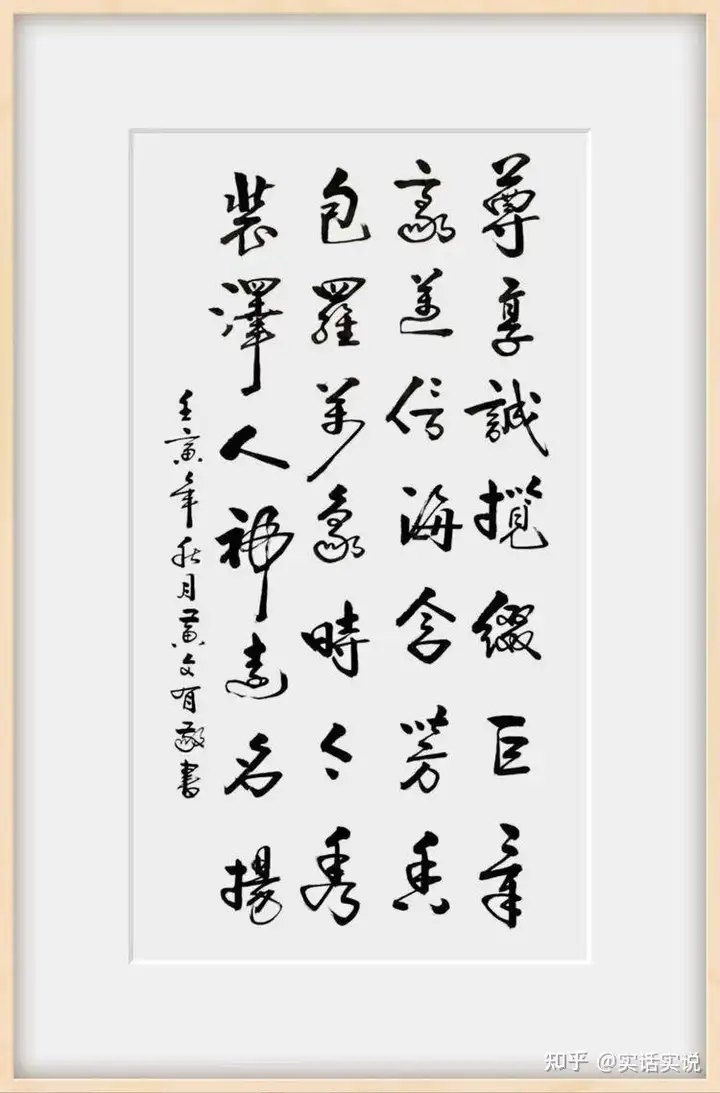 尊享誠攬綴巨章
豪信海含芳香
包羅萬象時令秀
裝澤人神遠名揚
壬寅年秋月黄文有敬書
知乎 @实话实说